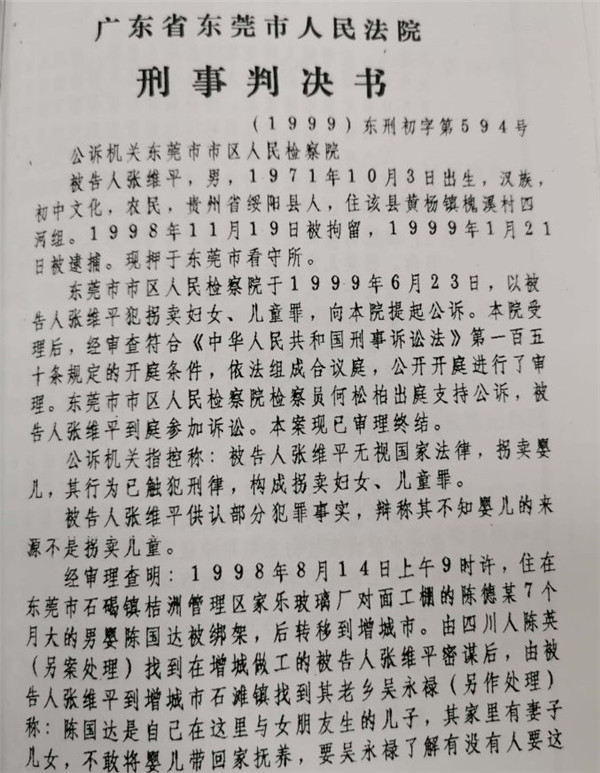 广东省东莞市人民法院
刑事判决书
(1999)东刑初字第594号
公诉机关东莞市市区人民检察院
被告人张维平，男，1971年10月3日出生，汉族，
初中文化，农民，贵州省绥阳县人，住该县黄杨镇槐溪村四
河组。1998年11月19日被拘留，1999年1月21
日被逮捕。现押于东莞市看守所。
东莞市市区人民检察院于1999年6月23日，以被
告人张维平犯拐卖妇女、儿童罪，向本院提起公诉。本院受
理后，经审查符合《中华人民共和国刑事诉讼法》第一百五
十条规定的开庭条件，依法组成合议庭，公开开庭进行了审
理。东莞市市区人民检察院检察员何松柏出庭支持公诉，被
告人张维平到庭参加诉讼。本案现已审理终结。
公诉机关指控称：被告人张维平无视国家法律，拐卖婴
儿，其行为已触犯刑律，构成拐卖妇女、儿童罪。
被告人张维平供认部分犯罪事实，辩称其不知婴儿的来
源不是拐卖儿童。
经审理查明：1998年8月14日上午9时许，住在
东莞市石碣镇桔洲管理区家乐玻璃厂对面工棚的陈德某7个
月大的男婴陈国达被绑架，后转移到增城市。由四川人陈英
(另案处理)找到在增城做工的被告人张维平密谋后，由被
告人张维平到增城市石滩镇找到其老乡吴永禄(另作处理)
称：陈国达是自己在这里与女朋友生的儿子，其家里有妻子
儿女，不敢将婴儿带回家抚养，要吴永禄了解有没有人要这